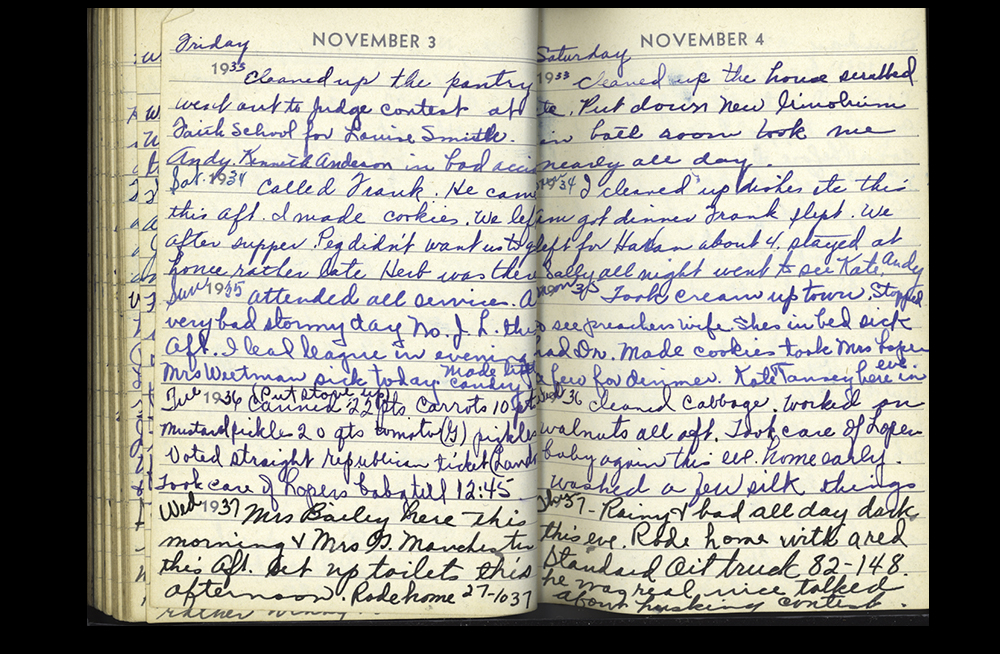 Friday NOVEMBER 3
1933 Cleaned up the pantry
went out to judge contest at
Faith School for Louise Smith.
Andy. Kenneth Anderson in bad acci
Sat. 1934 Called Frank. He came
this aft. I made cookies. We left
after supper. Peg didn't want us to g
home rather late Herb was there
Sun 1935 attended all services. A
very bad stormy day No. J. L. this
Aft. I lead league in evening
Mrs Weetman sick today made little candy
Tue 1936 (Put stove up) Canned 22 pts carrots 10 pts
mustard pickles 20 qts tomato (G) pickles
Voted straight republican ticket (Landon
Took care of Lopers baby till 12:45
Wed 1937 Mrs Bailey here this
morning & Mrs G. Manchester
this Aft. Set up toilets this
afternoon. Rode home 27-1037
rather
Saturday NOVEMBER 4
1933 Cleaned up the house scrubbed
etc. Put down new limolium
in bath room took me
nearly all day.
1934 I cleaned up dishes etc this
am got dinner Frank slept. We
left for about 4. stayed at
Sally all night went to see Kate, Andy
mon 35 Took cream up town, Stopped
to see preachers wife. Shes in bed sick
had Dr. Made cookies took Mrs Loper
a few for dinner. Kate Tansey here in eve.
Wed 36 cleaned cabbage. Worked on
walnuts all aft. Took care of Lopers
baby again this eve. home early.
Washed a few silk things
Thr 37 - Rainy & bad all day dark
this eve. Rode home with a red
Standard Oil truck 82-148.
he was real nice talked
about husking contest.